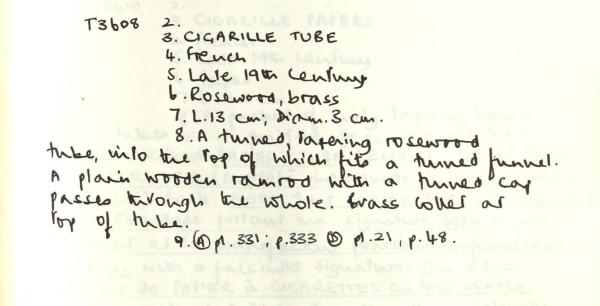 T3608 2.
3. CIGARILLE TUBE
4. French
5. Late 19th Century
6. Rosewood, brass
7. L.13 cm; Diam. 3 cm.
8. A turned, tapering rosewood
tube, into the top of which fits a turned funnel.
A plain wooden ramrod with a turned cap
passes through the whole. Brass collet at
top of tube.
9. (A) pl. 331; p.333 (D) pl. 21, p.48.